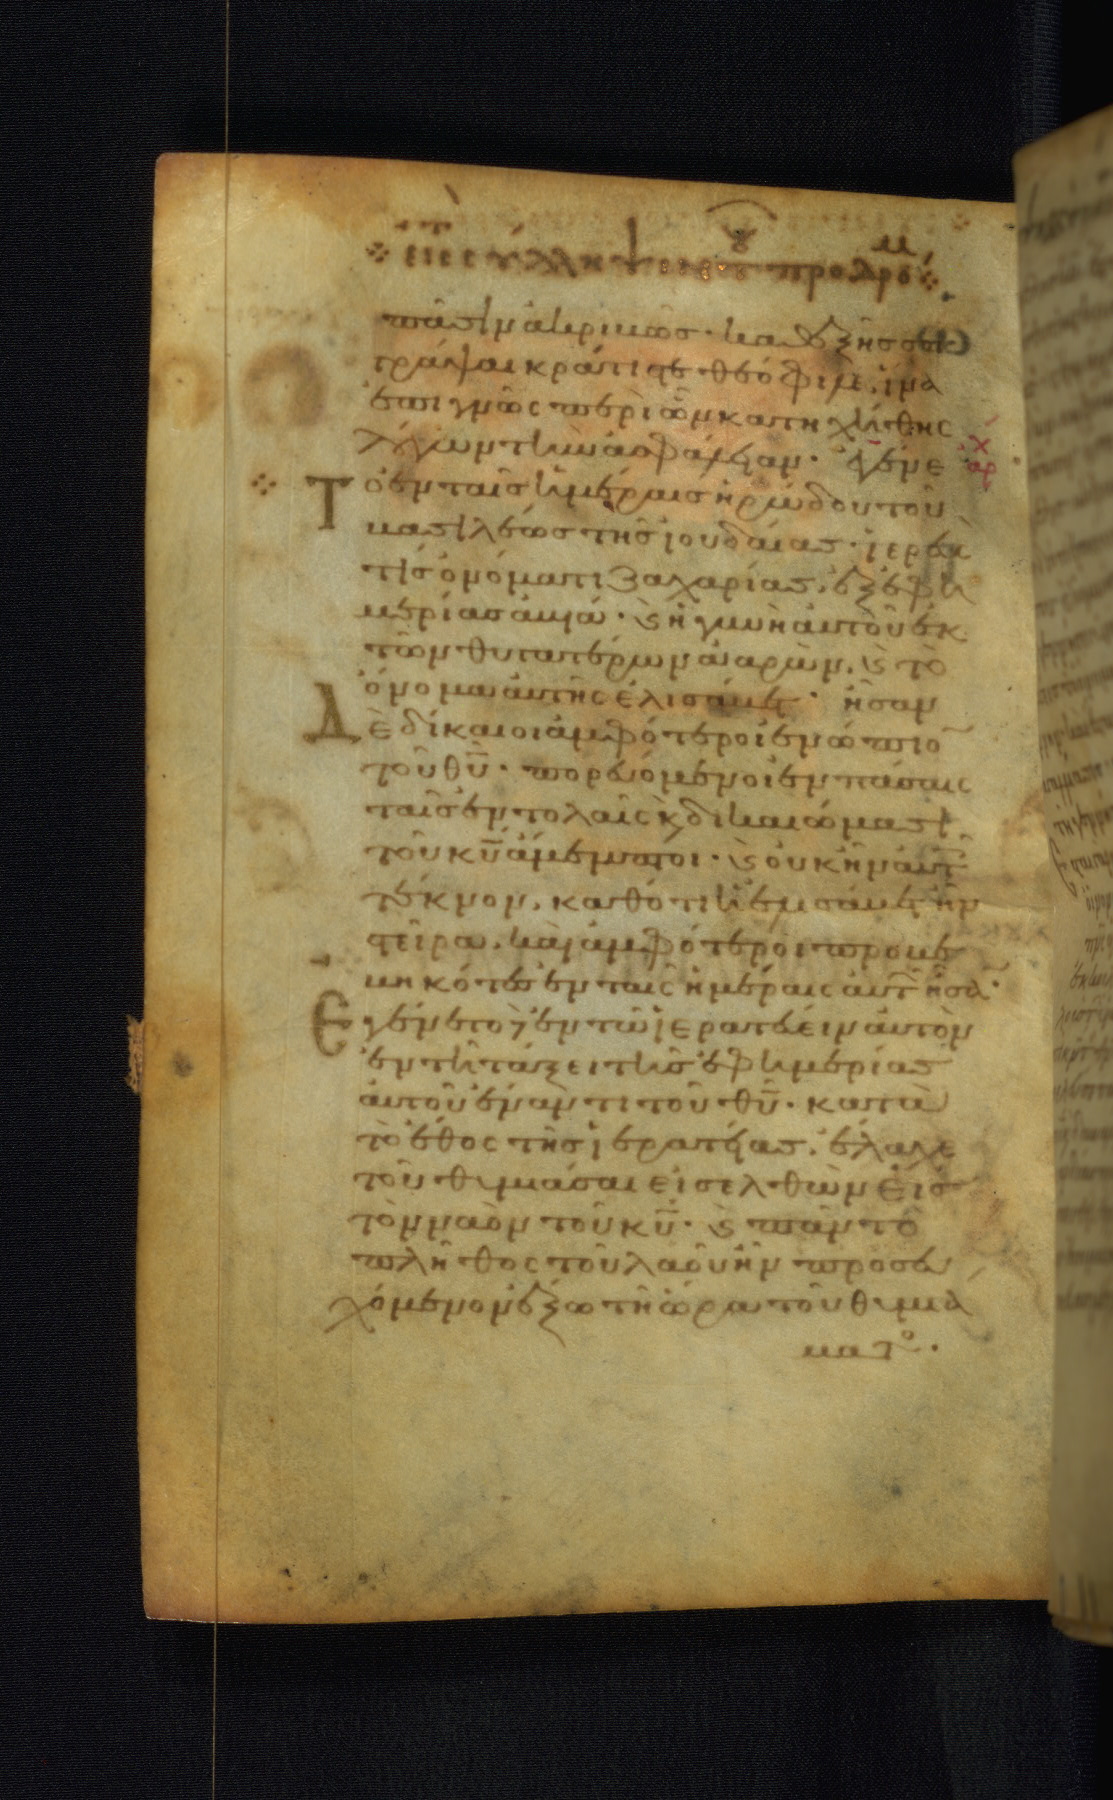 πᾶσιν ἀκριβῶς· καθεξῆς σοι
γράψαι κράτιστε θεόφιλε, ἵνα
ἐπιγνῶς περὶ ὧν κατηχήθης
λόγων τὴν ἀσφάλειαν· ἐγένε
Το ἐν ταῖς ἡμέραις ἡρώδου τοῦ
βασιλέως τῆς ἰουδαίας· ἱερεύς
τις ὀνόματι ζαχαρίας, ἐξ ἐφη
μερίας ἀβιά· ϗ ἡ γυνὴ αὐτοῦ ἐκ
τῶν θυγατέρων ἀαρών, ϗ τὸ
ὄνομα αὐτῆς ἐλισάβετ· ἦσαν
Δὲ δίκαιοι ἀμφότεροι ἐνώπιο
τοῦ θυ· πορευόμενοι ἐν πάσαις
ταῖς ἐντολαῖς ϗ δικαιώμασι
τοῦ κυ ἄμεμπτοι· ϗ οὐκ ἦν αὐτ
τέκνον, καθότι ἡ ἐλισάβετ ἦν
στεῖρα, καὶ ἀμφότεροι προβε
βηκότες ἐν ταῖς ἡμέραις αὐτ ἦσα·
Ἐγένετο δὲ ἐν τῷ ἱερατεύειν αὐτὸν
ἐν τῇ τάξει τῆς ἐφημερίας
αὐτοῦ ἐναντι τοῦ θυ· κατὰ
τὸ ἔθος τῆς ἱερατείας, ἔλαχε
τοῦ θυμιάσαι εἰσελθὼν εἰς
τὸν ναὸν τοῦ κυ· ϗ πᾶν τὸ
πλῆθος τοῦ λαοῦ ἦν προσευ
χόμενον ἔξω τῇ ὥρᾳ τοῦ θυμιά
ματο·